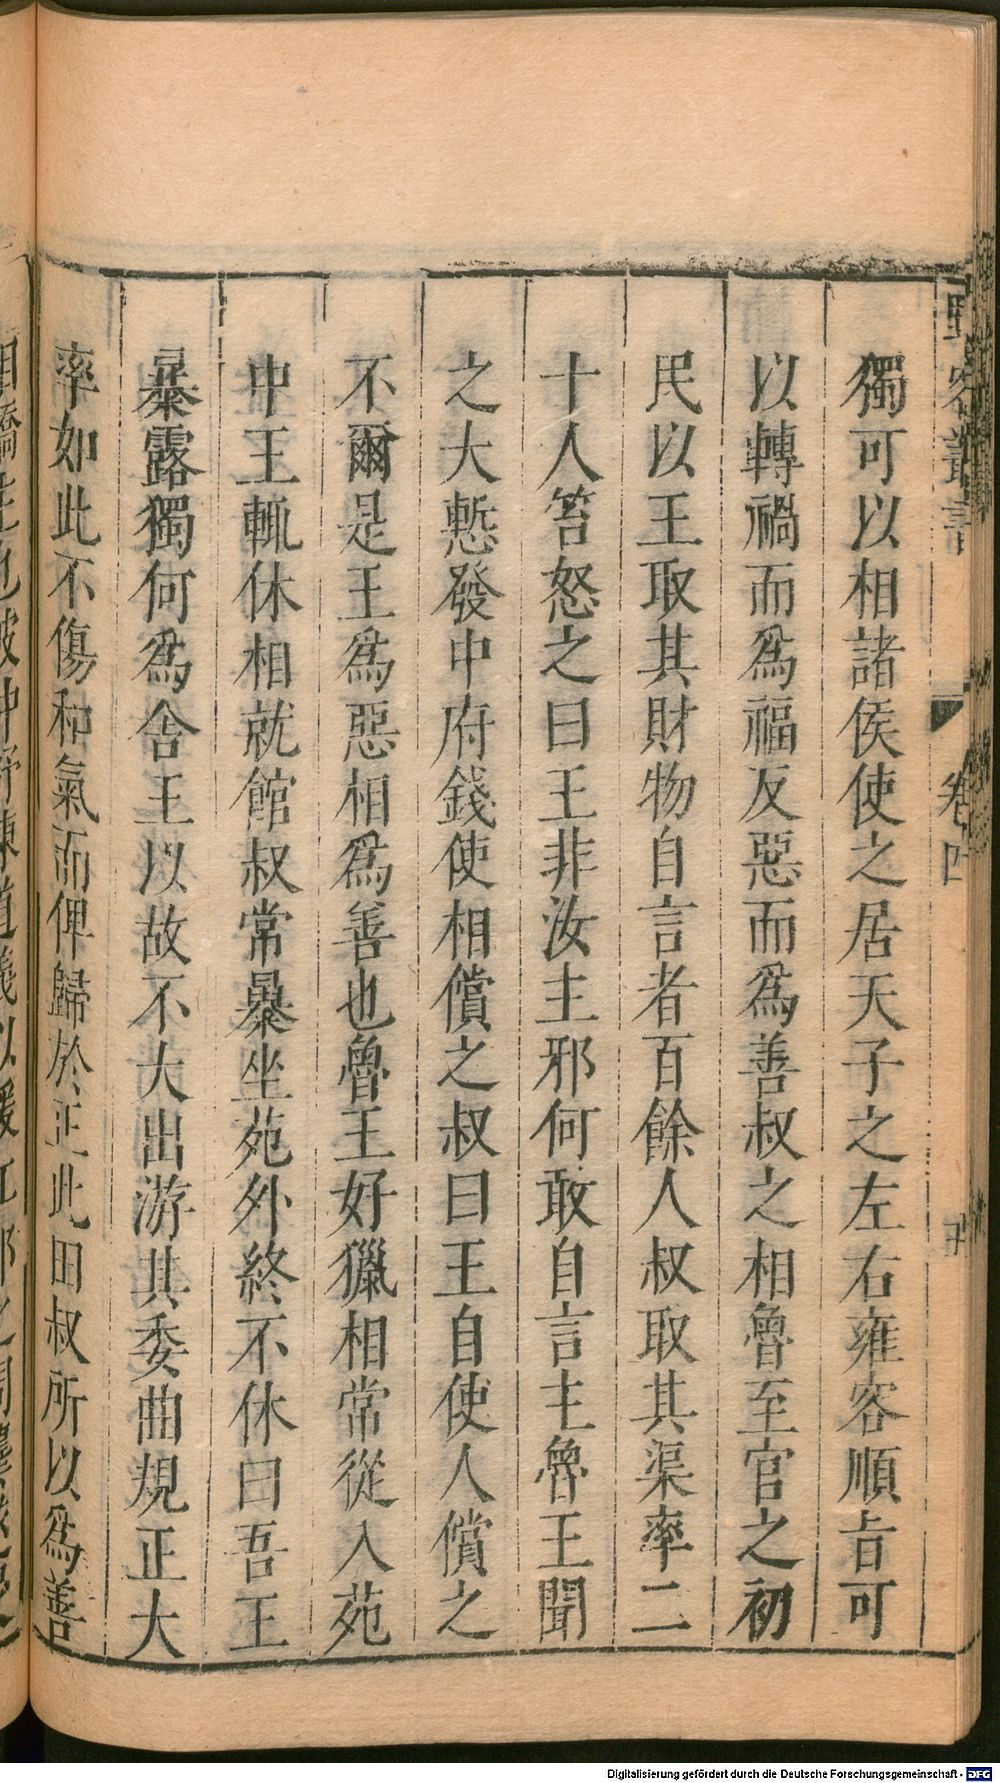 野客叢書 卷四
獨可以相諸侯使之居天子之左右雍容順㫖可
以轉禍而爲福反惡而爲善叔之相魯至官之初
民以王取其財物自言者百餘人叔取其渠率二
十人笞怒之曰王非汝主邪何敢自言主魯王聞
之大慙發中府錢使相償之叔曰王自使人償之
不爾是王爲惡相爲善也魯王好獵相常從入苑
中王輒休相就館叔常暴坐苑外終不休曰吾王
暴露獨何爲舍王以故不大出游其委曲規正大
率如此不傷和氣而俾歸於正此田叔所以爲善
Digitalisierung gefördert durch die Deutsche Forschungsgemeinschaft - DFG